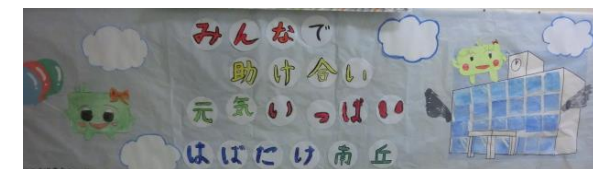 みんなで
助け合い
元気いっぱい
はばたけ南丘